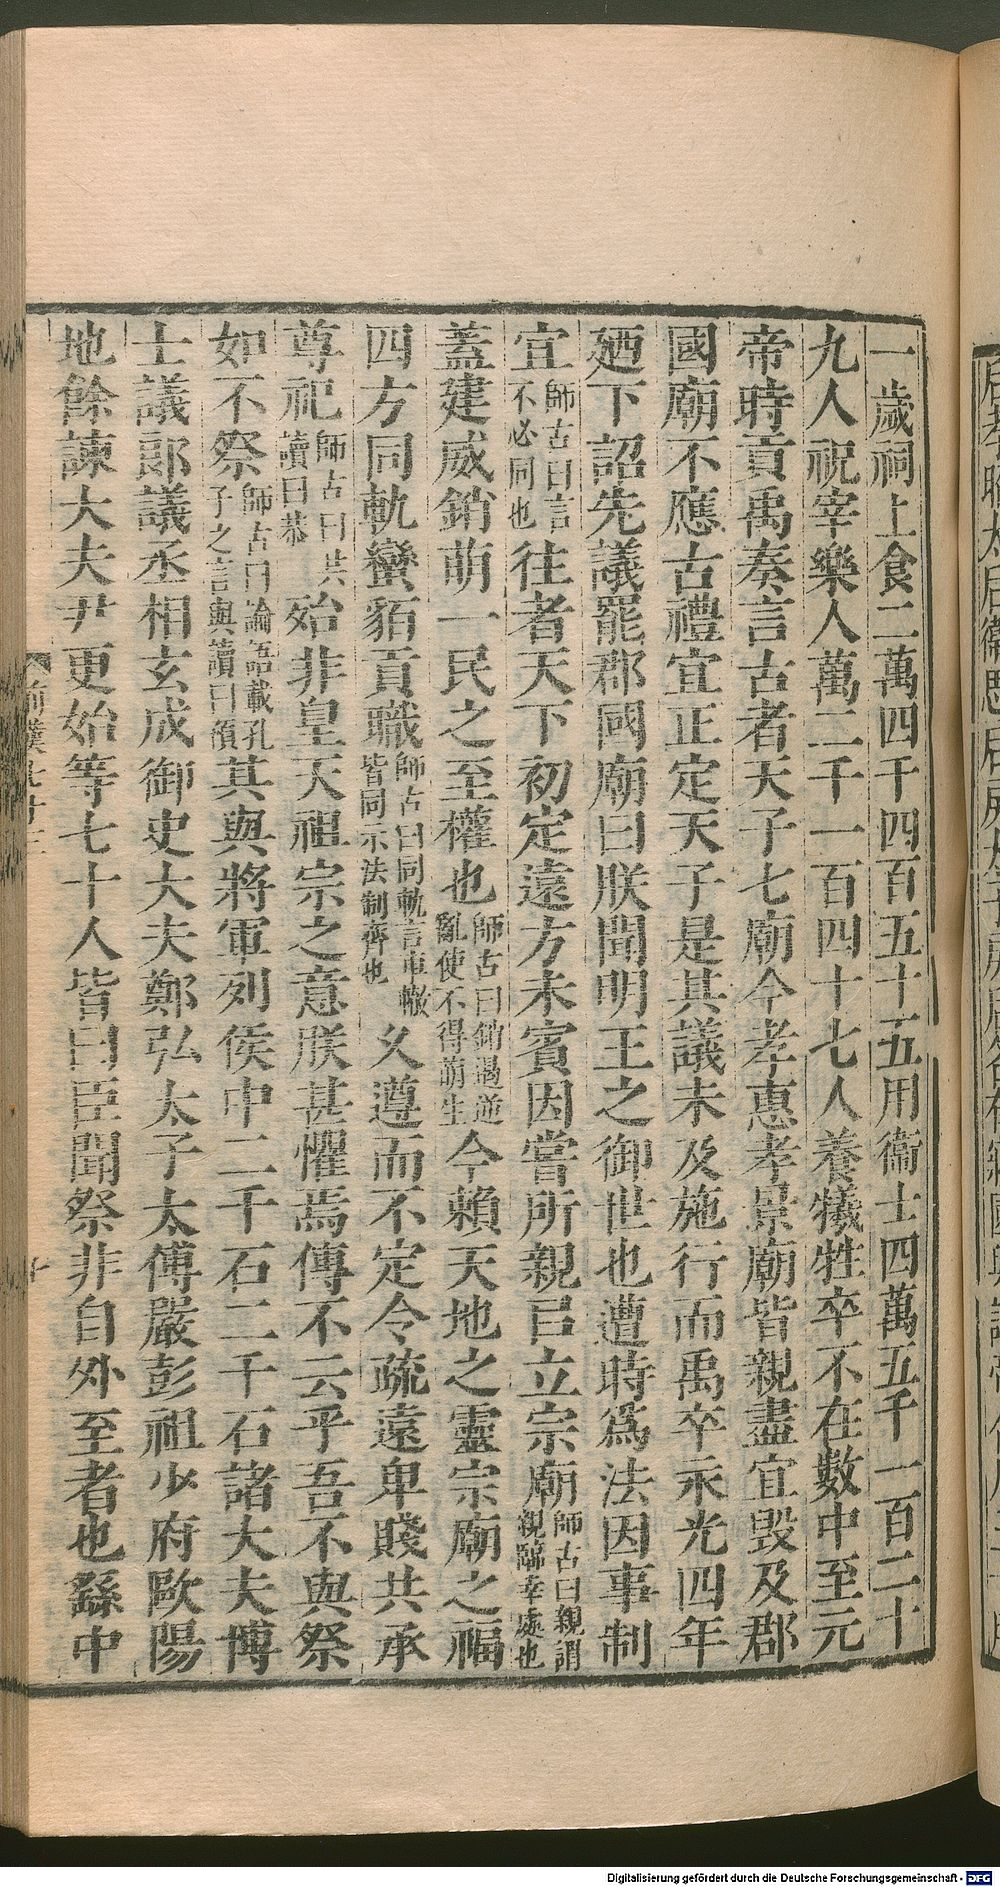 一歲祠上食二萬四千四百五十五用衞士四萬五千一百二十
九人祝宰樂人萬二千一百四十七人養犧牲卒不在數中至元
帝時貢禹奏言古者天子七廟今孝惠孝景廟皆親盡宜毁及郡
國廟不應古禮宜正定天子是其議未及施行而禹卒永光四年
廼下詔先議罷郡國廟曰朕聞明王之御世也遭時爲法因事制
宜師古曰言不必同也往者天下初定遠方未賓因嘗所親㠯立宗廟師古曰親謂親臨幸處也
蓋建威銷萌一民之至權也師古曰銷遏逆亂使不得萌生今賴天地之靈宗廟之福
四方同軌蠻貊貢職師古曰同軌言車轍皆同示法制齊也久遵而不定令疏遠卑賤共承
尊祀師古曰共讀曰恭殆非皇天祖宗之意朕甚懼焉傳不云乎吾不與祭
如不祭師古曰論語載孔子之言與讀曰預其與將軍列侯中二千石二千石諸大夫博
士議郞議丞相玄成御史大夫鄭弘太子太傅嚴彭祖少府歐陽
地餘諫大夫尹更始等七十人皆曰臣聞祭非自外至者也繇中
前漢
Digitalisierung gefördert durch die Deutsche Forschungsgemeinschaft - DFG